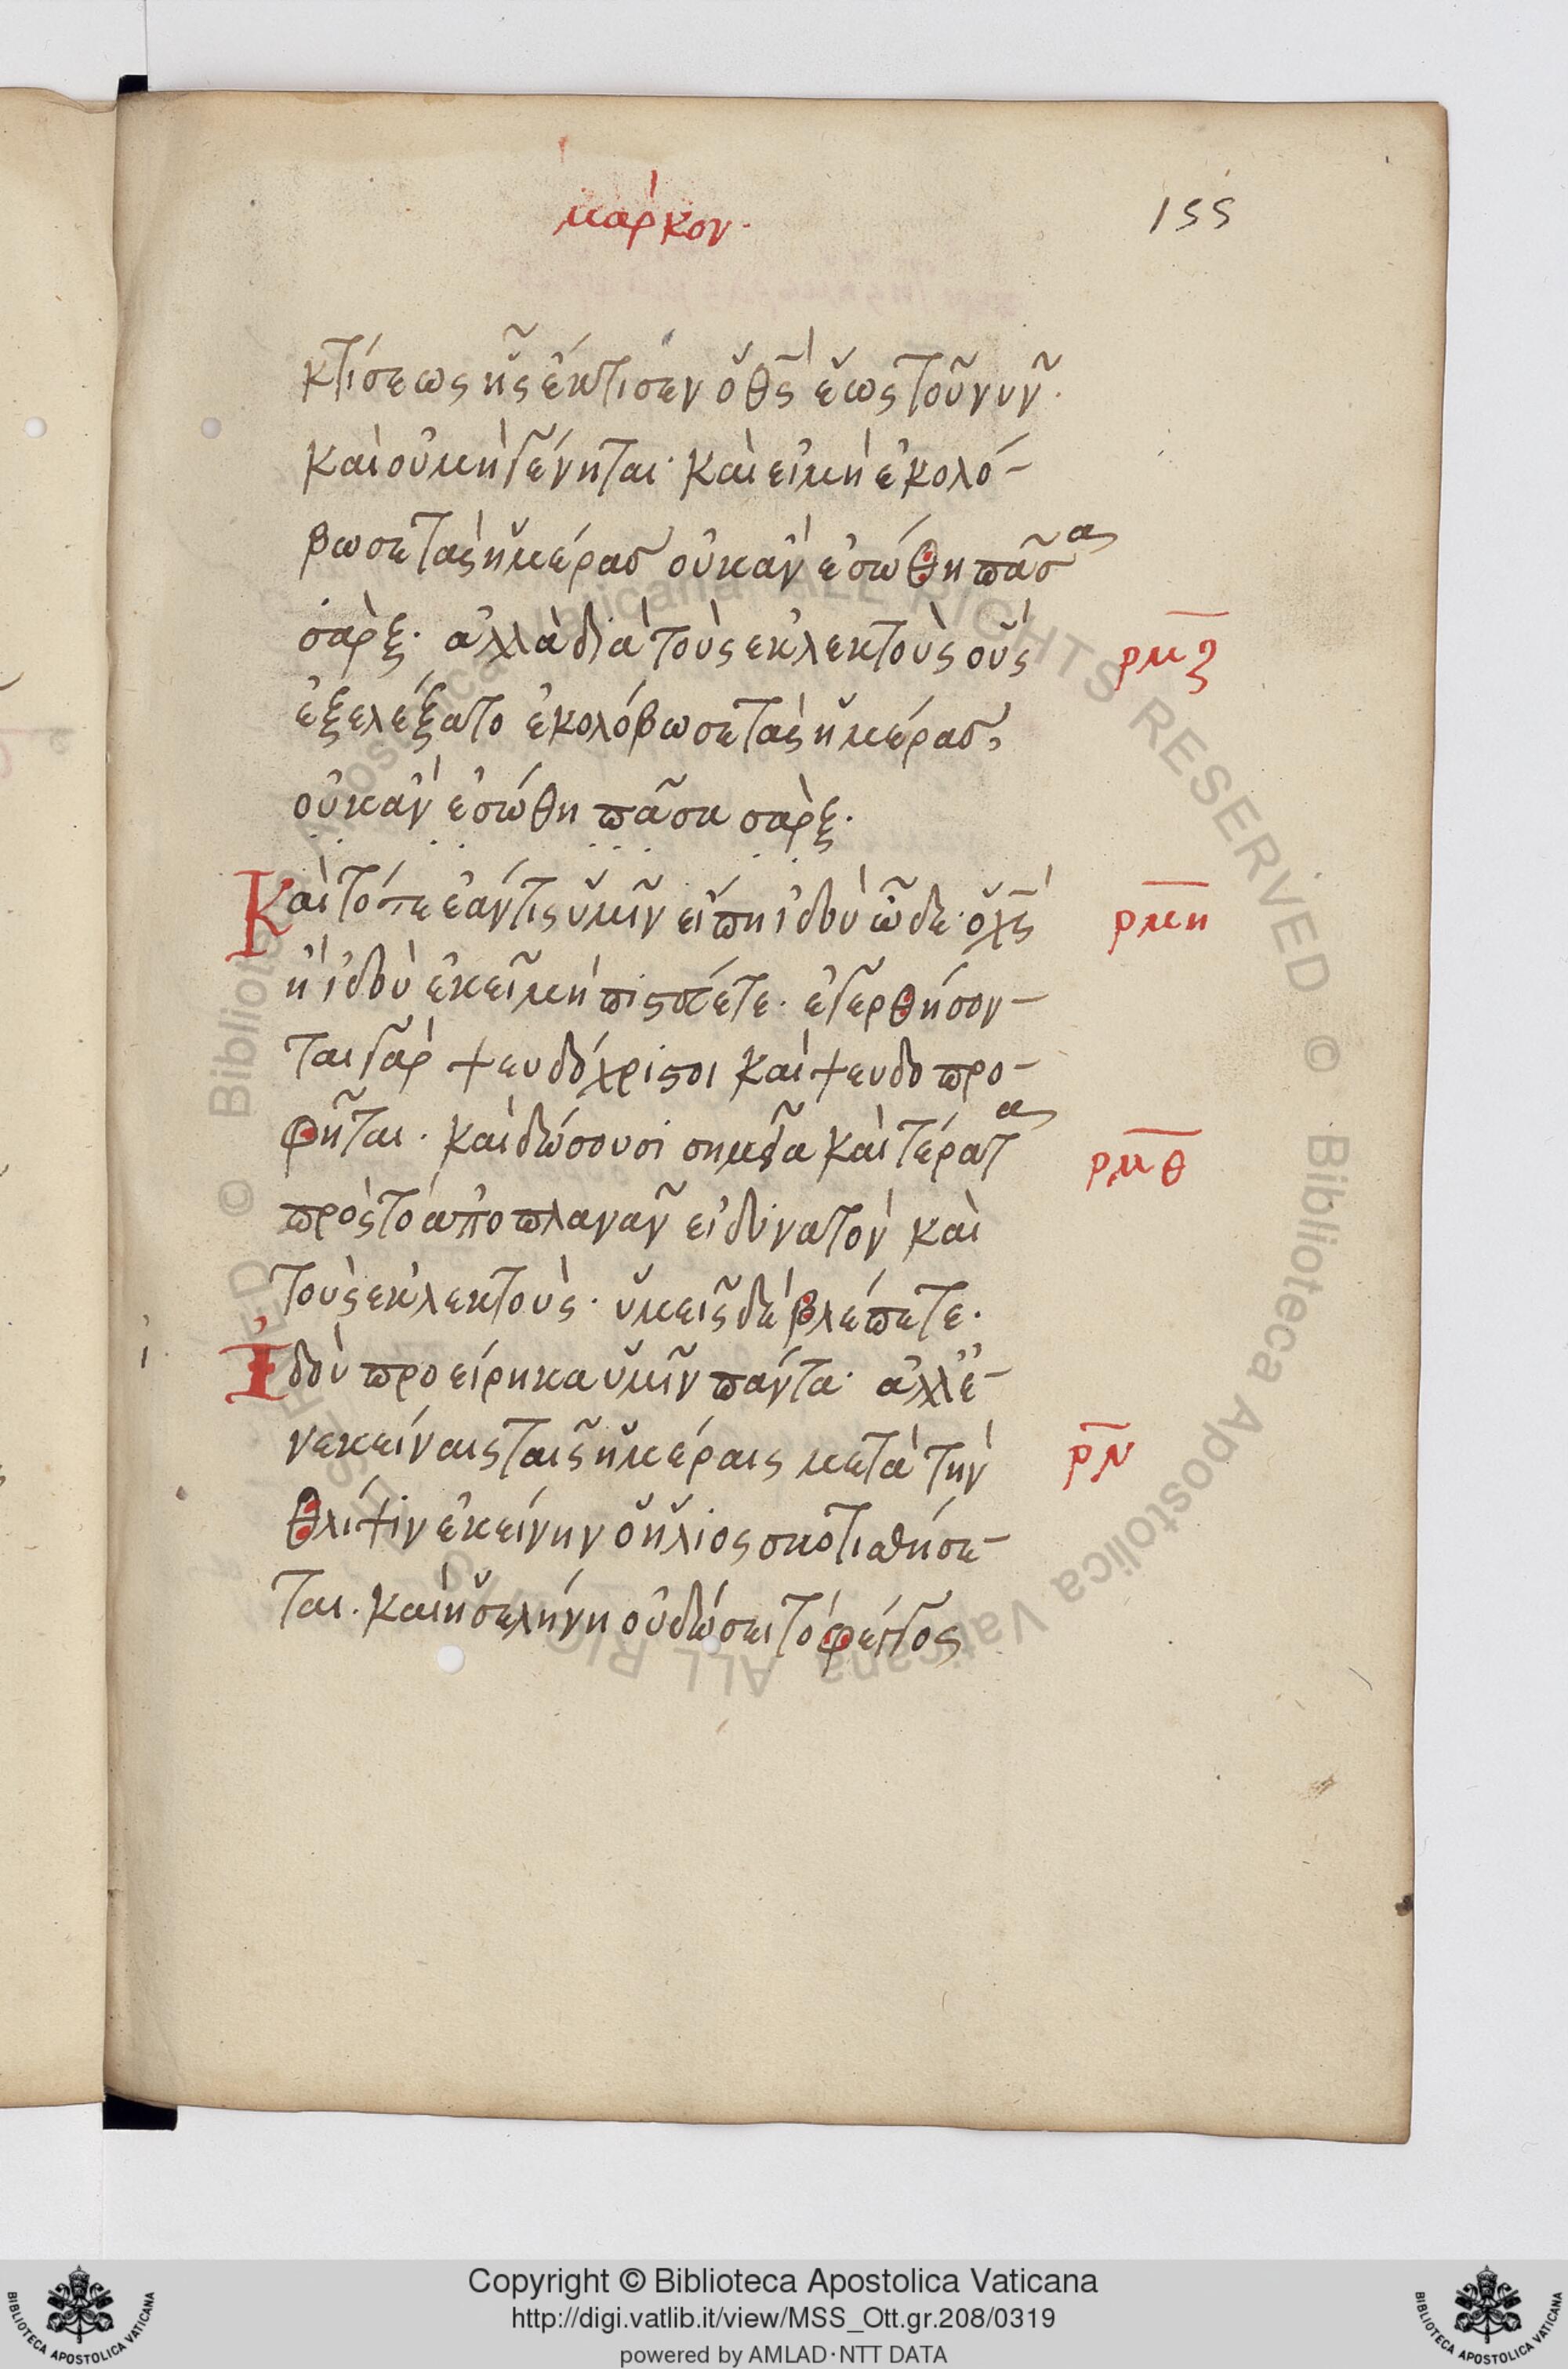 μάρκον·
155
κτίσεως ἧς ἔκτισεν ὁ θς ἕως τοῦ νῦν·
καὶ οὐ μὴ γένηται· καὶ εἰ μὴ ἐκολό-
βωσε τὰς ἡμέρασ οὐκ ἂν ἐσώθη πᾶσα
σάρξ· ἀλλὰ διὰ τοὺς ἐκλεκτοὺς οὓς
ρμζ
ἐξελέξατο ἐκολόβωσε τὰς ἡμέρασ,
οὐκ ἂν ἐσώθη πᾶσα σάρξ·
Καὶ τότε ἐάν τις ὑμῖν εἴπη ἰδοὺ ὧδε· ὁ χς
ρμη
ἢ ἰδοὺ ἐκεῖ μὴ πιστεύετε· ἐγερθήσον-
ται γὰρ ψευδόχριστοι καὶ ψευδοπρο-
φῆται· καὶ δώσουσι σημεῖα καὶ τέρατα
ρμθ
πρὸς τὸ ἀποπλανᾶν εἰ δυνατὸν καὶ
τοὺς ἐκλεκτούς· ὑμεῖς δὲ βλέπετε·
Ἰδοὺ προείρηκα ὑμῖν πάντα· ἀλλ' ἐ-
ν ἐκείναις ταῖς ἡμέραις μετὰ τὴν
ρν
θλίψιν ἐκείνην ὁ ἥλιος σκοτισθήσε-
ται· καὶ ἡ σελήνη οὐ δώσει τὸ φέγγος
Copyright © Biblioteca Apostolica Vaticana
http://digi.vatlib.it/view/MSS_Ott.gr.208/0319
powered by AMLAD·NTT DATA
BIBLIOTECA APOSTOLICA VATICANA
BIBLIOTECA APOSTOLICA VATICANA
© Biblioteca Apostolica Vaticana ALL RIGHTS RESERVED © Biblioteca Apostolica Vaticana ALL RIGHTS RESERVED